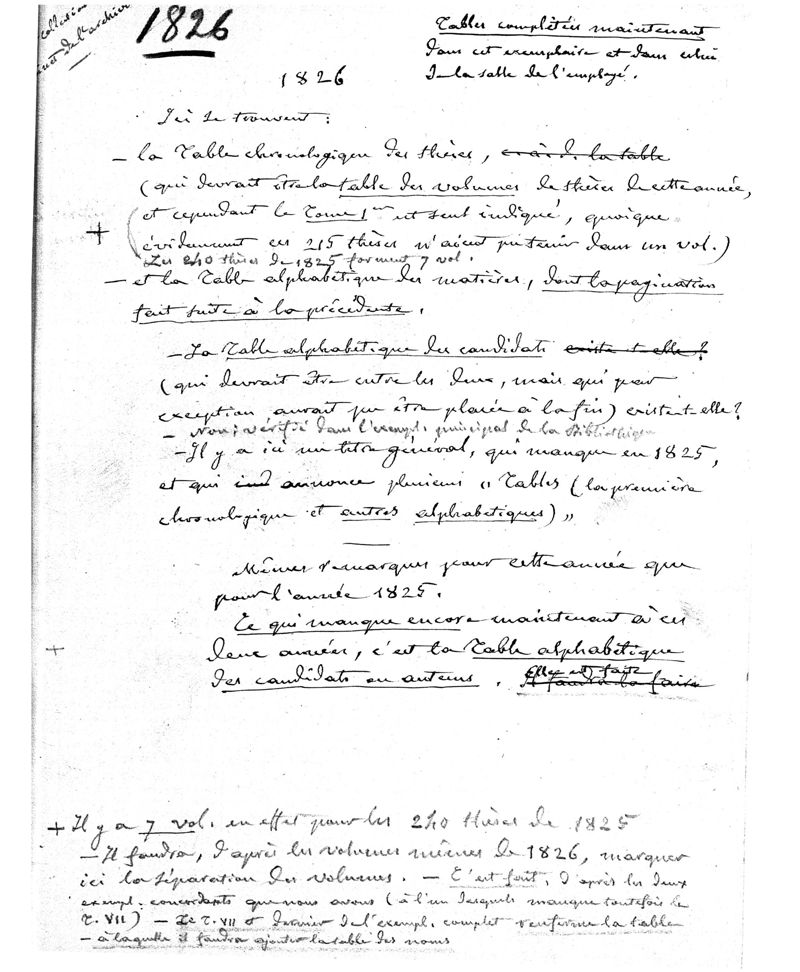 collection
de l'archiv
1826
Tables complétées maintenant
dans cet exemplaire et dans celui
de la salle de l'employé.
1826
Ici se trouvent :
– la Table chronologique des thèses, c. à. d. la table
(qui devrait être la table des volumes de thèses de cette année,
et cependant le Tome 1er est seul indiqué, quoique
évidemment ces 215 thèses n'aient pu tenir dans un vol.)
Les 240 thèses de 1825 forment 7 vol.
– et la Table alphabétique des matières, dont la pagination
fait suite à la précédente.
– La Table alphabétique des candidats existe t-elle ?
(qui devrait être entre les deux, mais qui par
exception aurait pu être placée à la fin) existe t-elle ?
– Non ; vérifié dans l'exempl. principal de la Bibliothèque
– Il y a ici un titre général, qui manque en 1825,
et qui ind annonce plusieurs « Tables (la première
chronologique et autres alphabétiques) »
Mêmes remarques pour cette année que
pour l'année 1825.
Ce qui manque encore maintenant à ces
deux années, c'est la Table alphabétique
des candidats ou auteurs.
Elle est faite
Il faudra la faire
+ Il y a 7 vol. en effet pour les 240 thèses de 1825
– Il faudra, d'après les volumes mêmes de 1826, marquer
ici la séparation des volumes. – C'est fait, d'après les deux
exempl. concordants que nous avons (à l'un desquels manque toutefois le
T. VII) – Le T. VII et dernier de l'exempl. complet renferme la table
– à laquelle il faudra ajouter la table des noms